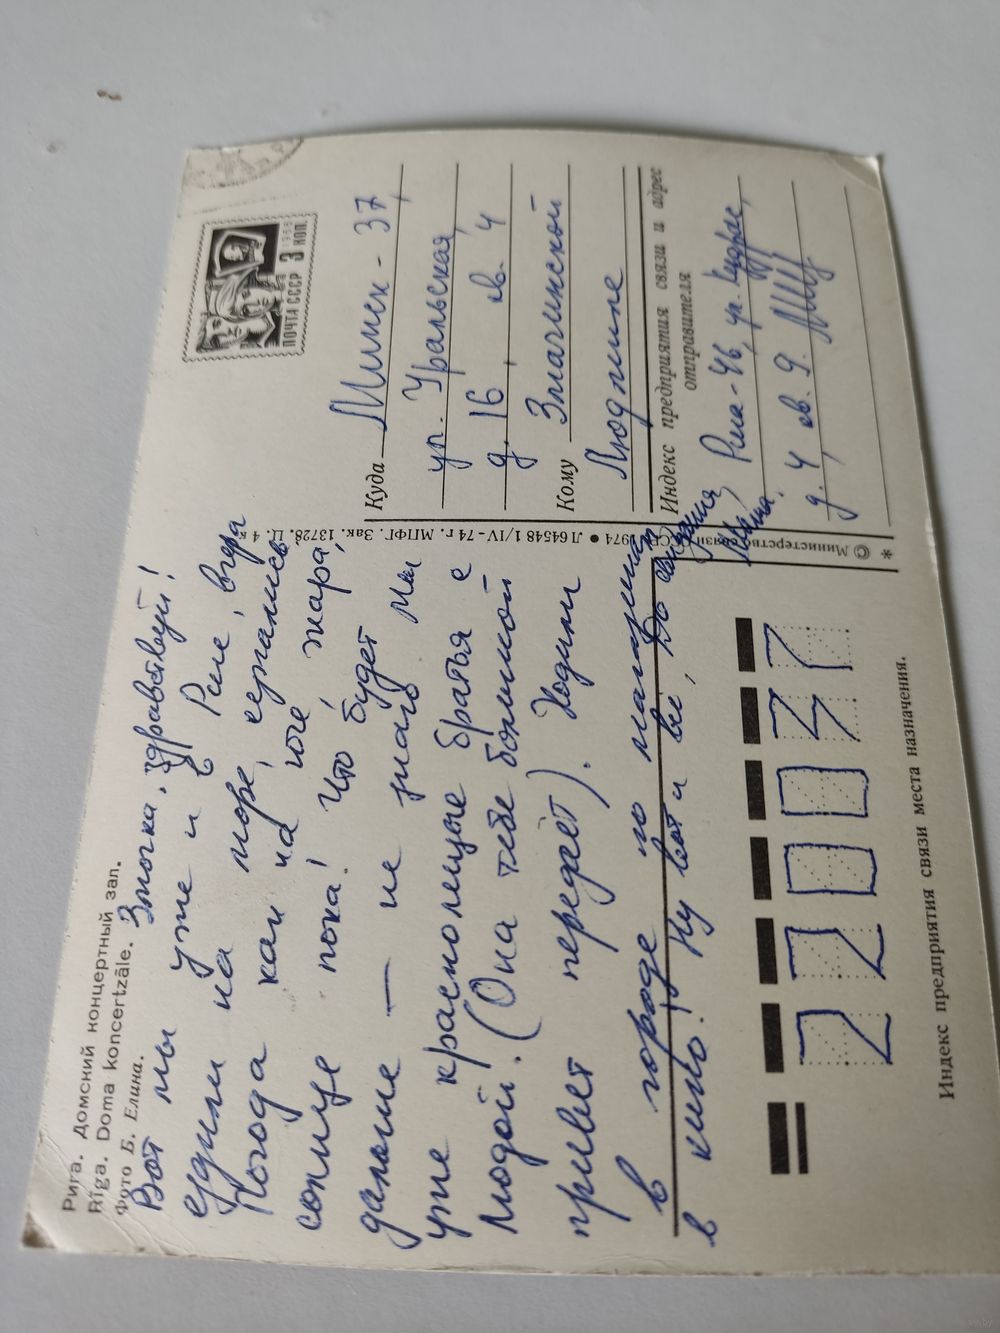 Рига. Домский концертный зал.
Rīga. Doma koncertzāle.
Фото Б. Елина.
здравствуй!
Вот мы уже и в Риге, вчера
ездили на море, купались
Погода как на юге, жара,
солнце пока! Что будет
дальше — не знаю. Мы
уже краснолицые братья с
Людой. (Она тебе большой
привет передаёт). Ходим
в городе по магазинам
в кино. Ну вот и всё, До свидания
ПОЧТА СССР 3 КОП.
1966
Куда Минск - 37,
ул. Уральская,
д. 16, кв. 4
Кому Змачинской
Людмиле
Индекс предприятия связи и адрес
отправителя
Рига-46, ул.
д. 4 кв. 9.
© Министерство связи СССР 1974 ● Л 64548 1/IV-74 г. МПФГ. Зак. 13728. Ц. 4 к.
*
220037
Индекс предприятия связи места назначения.